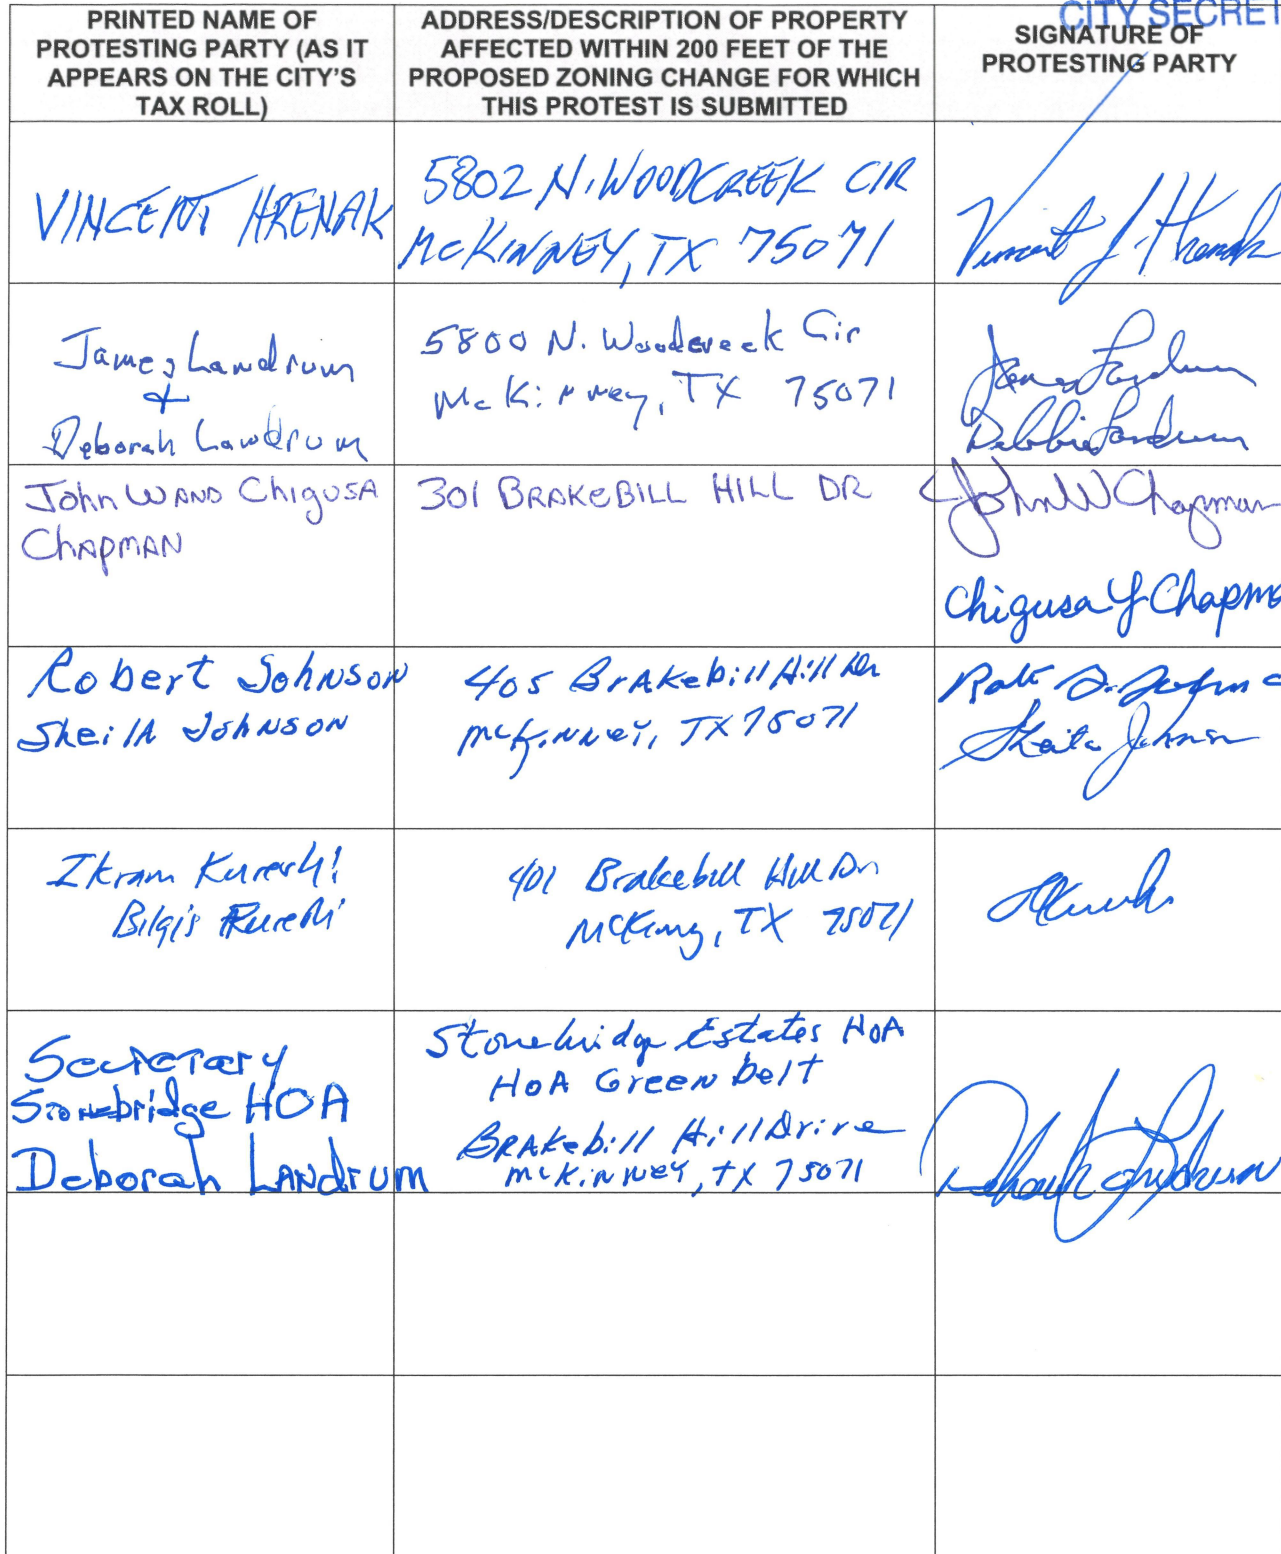 CITY SECRET
PRINTED NAME OF
PROTESTING PARTY (AS IT
APPEARS ON THE CITY'S
TAX ROLL)
ADDRESS/DESCRIPTION OF PROPERTY
AFFECTED WITHIN 200 FEET OF THE
PROPOSED ZONING CHANGE FOR WHICH
THIS PROTEST IS SUBMITTED
SIGNATURE OF
PROTESTING PARTY
VINCENT HRENAK
5802 N. WOODCREEK CIR
McKINNEY, TX 75071
Vincent J. Hrenak
James Landrum
+
Deborah Landrum
5800 N. Woodcreek Cir
McKinney, TX 75071
James Landrum
Debbie Landrum
John W AND Chigusa
Chapman
301 BRAKEBILL HILL DR
John W Chapman
Chigusa Y Chapma
Robert Johnson
Sheila Johnson
405 Brakebill Hill Dr
McKinney, TX 75071
Sheila Johnson
Ikram Kureshi
Bilqis Kureshi
401 Brakebill Hill Dn
McKinny, TX 75071
Secretary
Stonebridge HOA
Deborah Landrum
Stonebridge Estates HOA
HOA Greenbelt
Brakebill Hill Drive
McKinney, TX 75071
Deborah Landrum